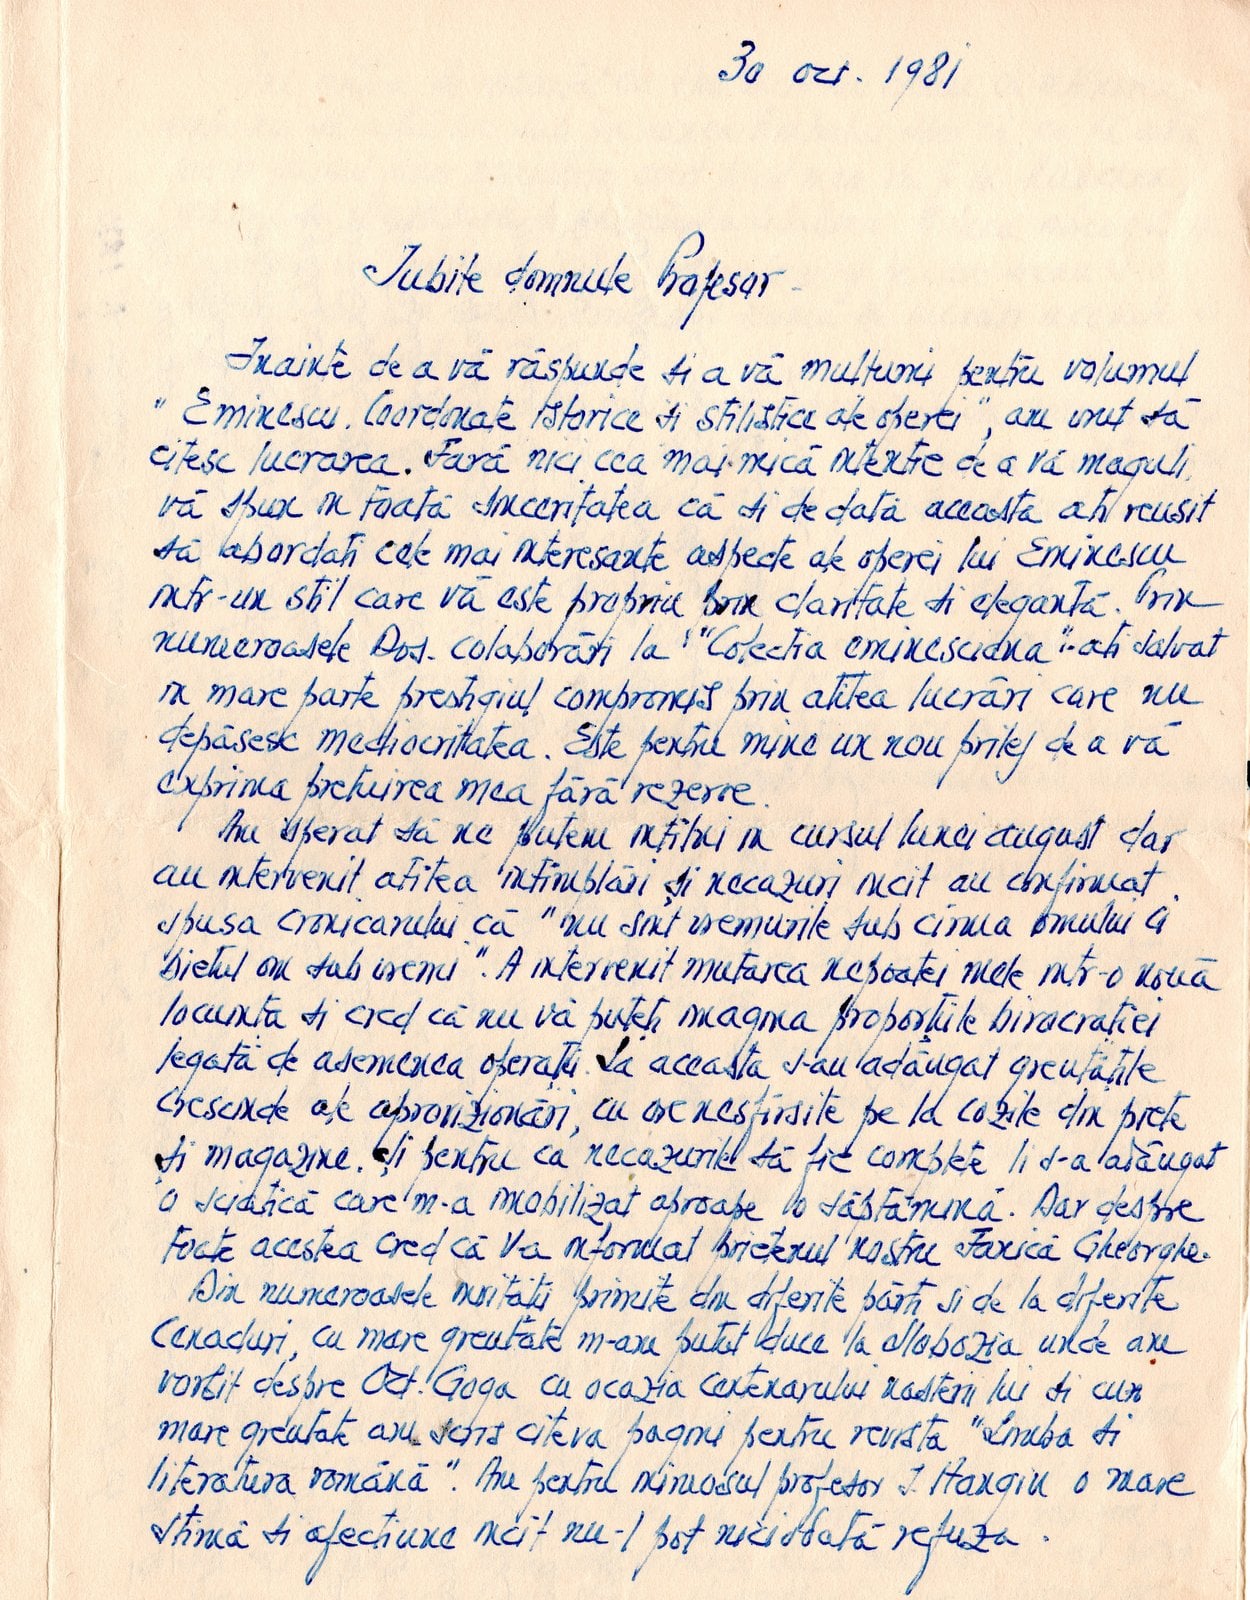 30 oct. 1981
Iubite domnule Profesor -
Înainte de a vă răspunde și a vă mulțumi pentru volumul
"Eminescu. Coordonate istorice și stilistice ale operei", am vrut să
citesc lucrarea. Fără nici cea mai mică intenție de a vă maguli,
vă spun în toată sinceritatea că și de data aceasta ați reușit
să abordați cele mai interesante aspecte ale operei lui Eminescu
într-un stil care vă este propriu prin claritate și eleganță. Prin
numeroasele Dvs. colaborări la "Colecția eminesciana" ați salvat
în mare parte prestigiul compromis prin atîtea lucrări care nu
depășesc mediocritatea. Este pentru mine un nou prilej de a vă
exprima prețuirea mea fără rezerve.
Am sperat să ne putem întîlni în cursul lunei august dar
au intervenit atîtea întîmplări și necazuri încît au confirmat
spusa cronicarului că "nu sînt vremurile sub cîrma omului ci
bietul om sub vremi". A intervenit mutarea nepoatei mele într-o nouă
locuință și cred că nu vă puteți imagina proporțiile birocrației
legată de asemenea operații. La aceasta s-au adăugat greutățile
crescînde ale aprovizionării, cu ore nesfîrsite pe la cozile din piețe
și magazine. Și pentru ca necazurile să fie complete li s-a adăugat
o sciatică care m-a imobilizat aproape o săptămînă. Dar despre
toate acestea cred că v-a informat prietenul nostru Fănică Gheorghe.
Din numeroasele invitații primite din diferite părți și de la diferite
Cenacluri, cu mare greutate m-am putut duce la Slobozia unde am
vorbit despre Oct. Goga cu ocazia centenarului nașterii lui și cu
mare greutate am scris cîteva pagini pentru revista "Limba și
literatura română". Am pentru inimosul profesor I. Hangiu o mare
stimă și afecțiune încît nu-l pot niciodată refuza.